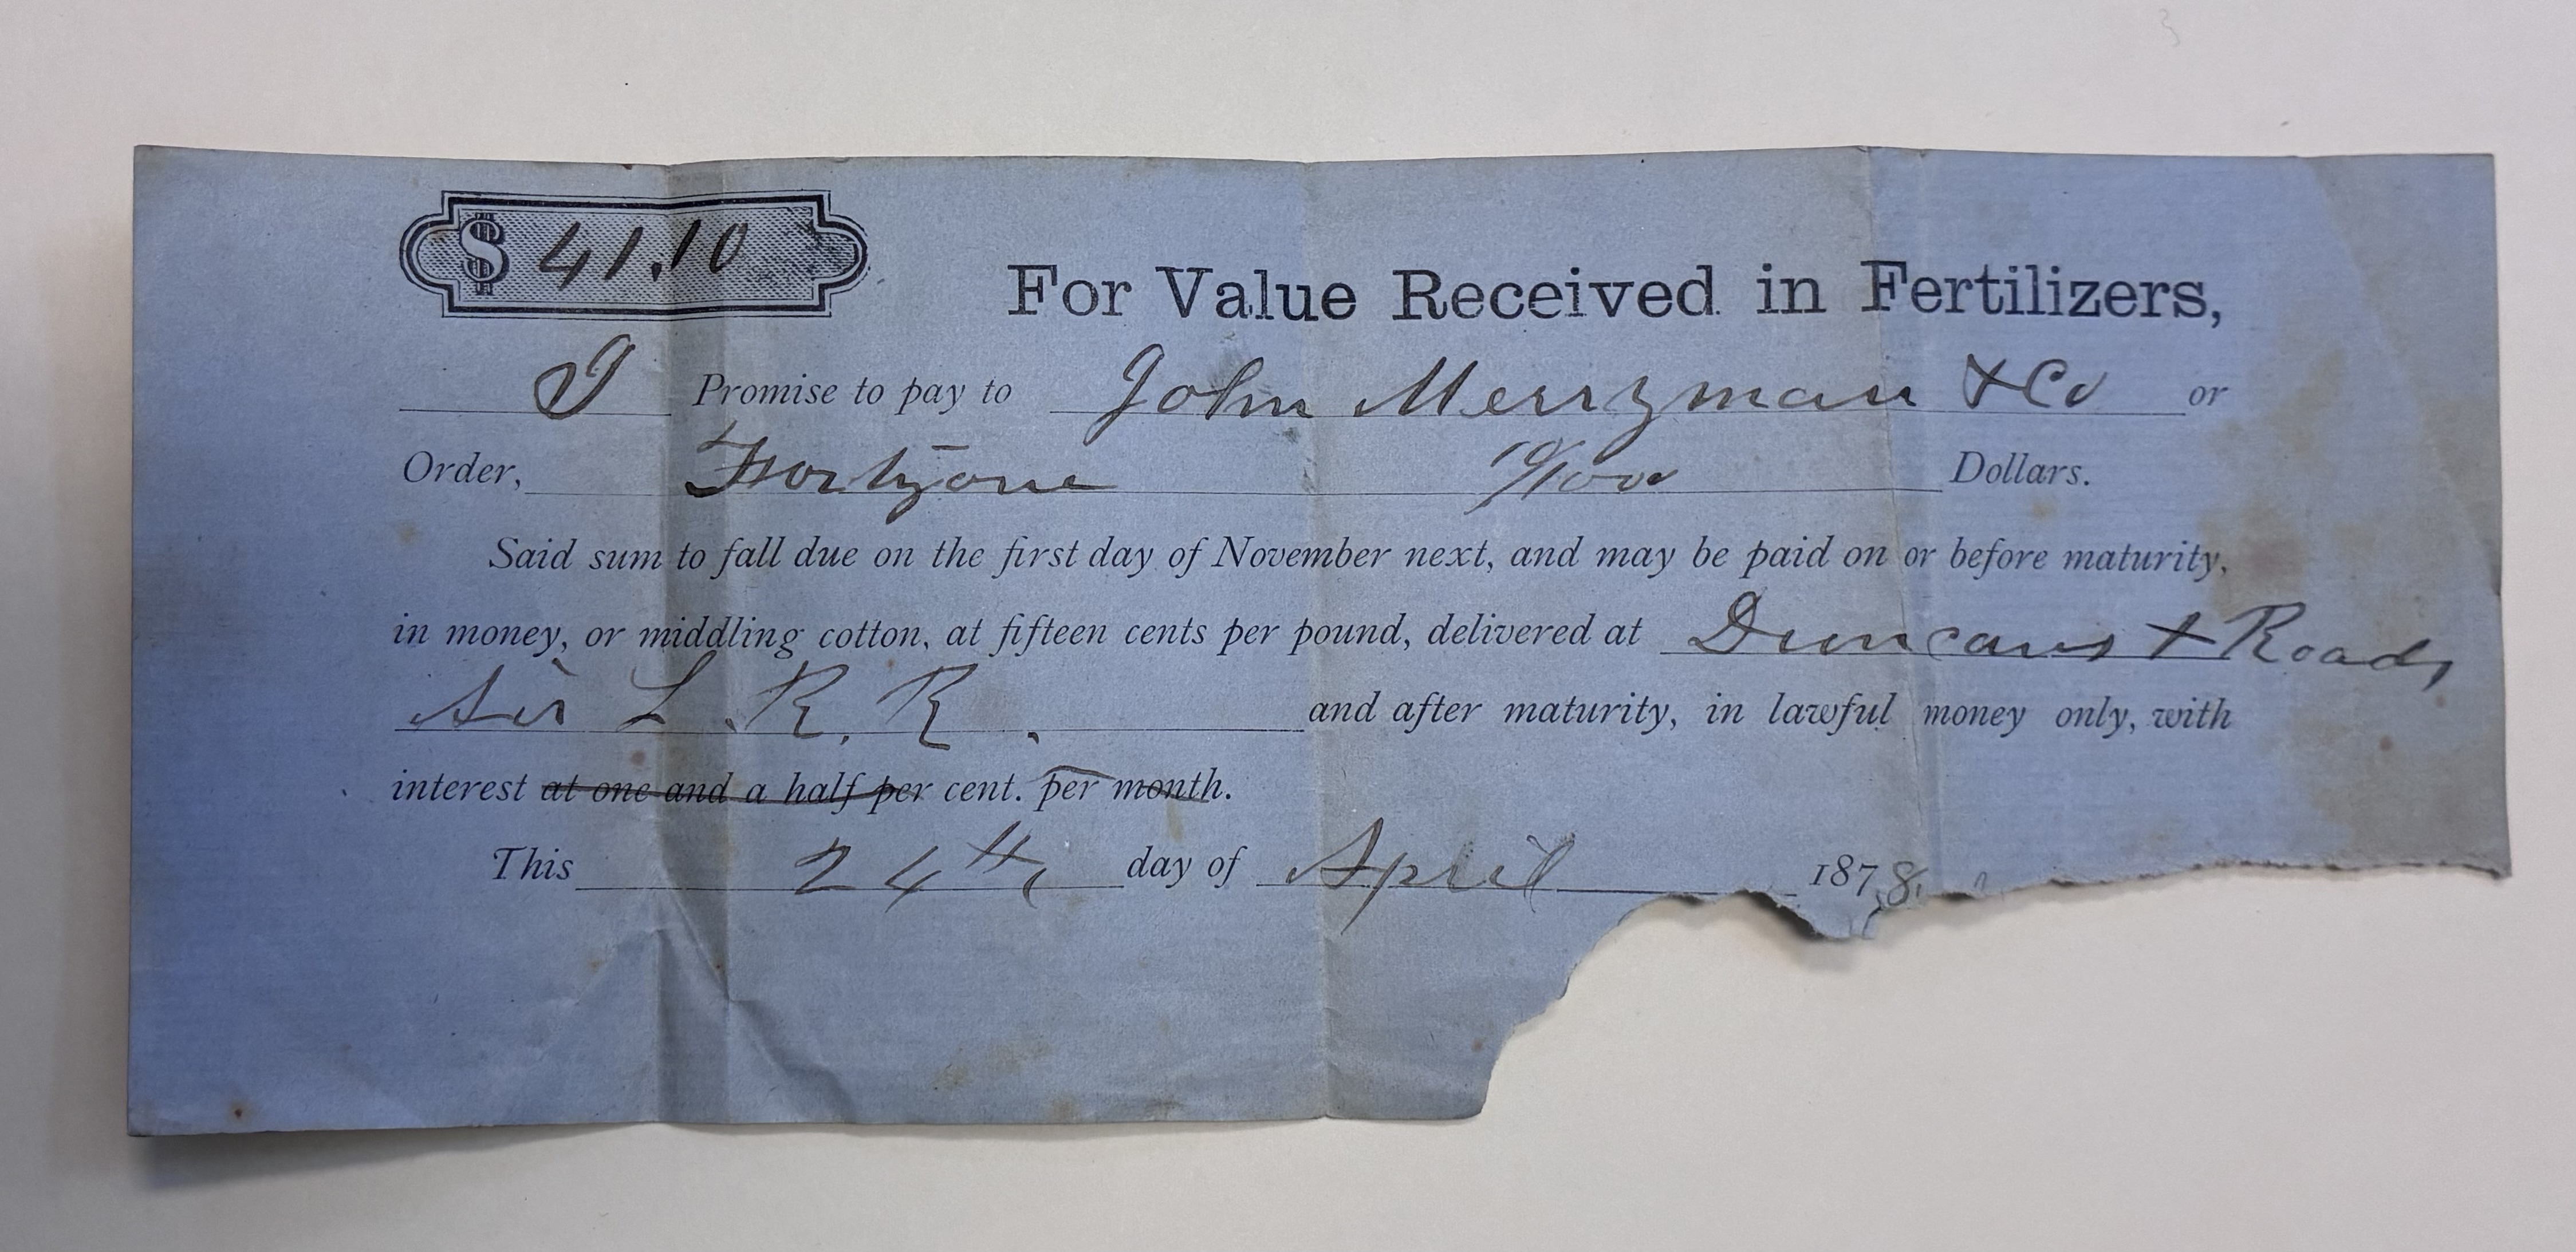 $ 41.10
For Value Received in Fertilizers,
I Promise to pay to John Merryman & Co or
Order, Fortyone 10/100 Dollars.
Said sum to fall due on the first day of November next, and may be paid on or before maturity,
in money, or middling cotton, at fifteen cents per pound, delivered at Duncans X Roads
Air L. R. R. and after maturity, in lawful money only, with
interest at one and a half per cent. per month.
This 24th day of April 1878.